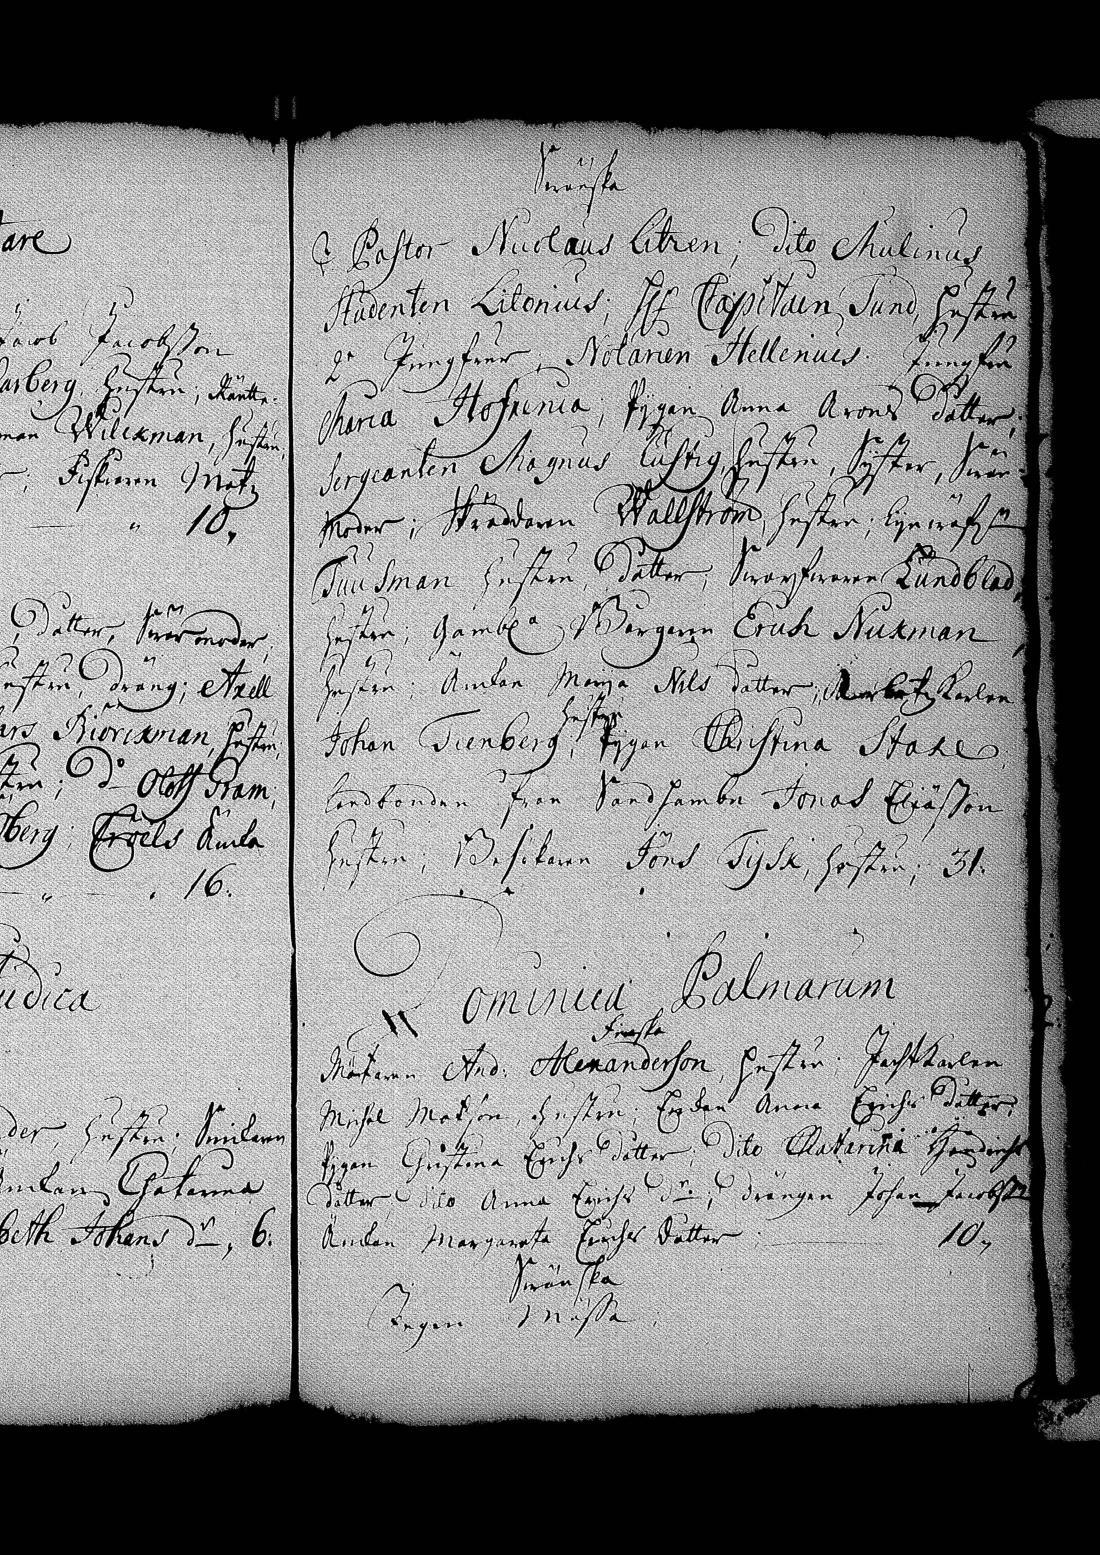 tare
Jacob Jacobsson
arberg, hustru; Räntte-
man Wilckman, hustru,
Fiskaren Matz
10,
, dotter, swärmoder;
hustru, dräng; Axell
Lars Kiörckman, hustru;
hustru; Do Oloff Gram;
berg; Troels Änka
16.
Judica
der, hustru; Smeden
Änkan Chatarina
beth Johans dr, 6.
Swänska
Pastor Nicolaus Litzen; Dito Mulinus
Studenten Litonius; Capitain Sund, hustru
2r Jungfrur; Notarien Hellenius Jungfru
Maria Hofrenia; Pygan Anna Arons dotter;
Sergeanten Magnus Lustig, hustru, Syster, Swär-
moder; Skräddaren Wallström, hustru;
Tuusman hustru, dotter; Swarfwaren Lundblad,
hustru; Gambla Borgaren Erich Nukman
hustru; Änkan Marja Nils dotter; karlen
hustru
Johan Tienberg, Pygan Christina Stake,
Landbonden från Sandhambn Jonas
hustru; Besökaren Jöns Tysk, hustru; 31.
Dominica Palmarum
Finska
And: Alexanderson, hustru; Jachtkarlen
Michel Matsson, hustru; Enckan Anna Erichs dotter;
Pygan Christina Erichs dotter; dito Chatarina Hendrichs
dotter, dito Anna Erichs dr; drängen Johan Jacobss
Änkan Margareta Erichs dotter 10,
Swänska
Ingen Mässa.